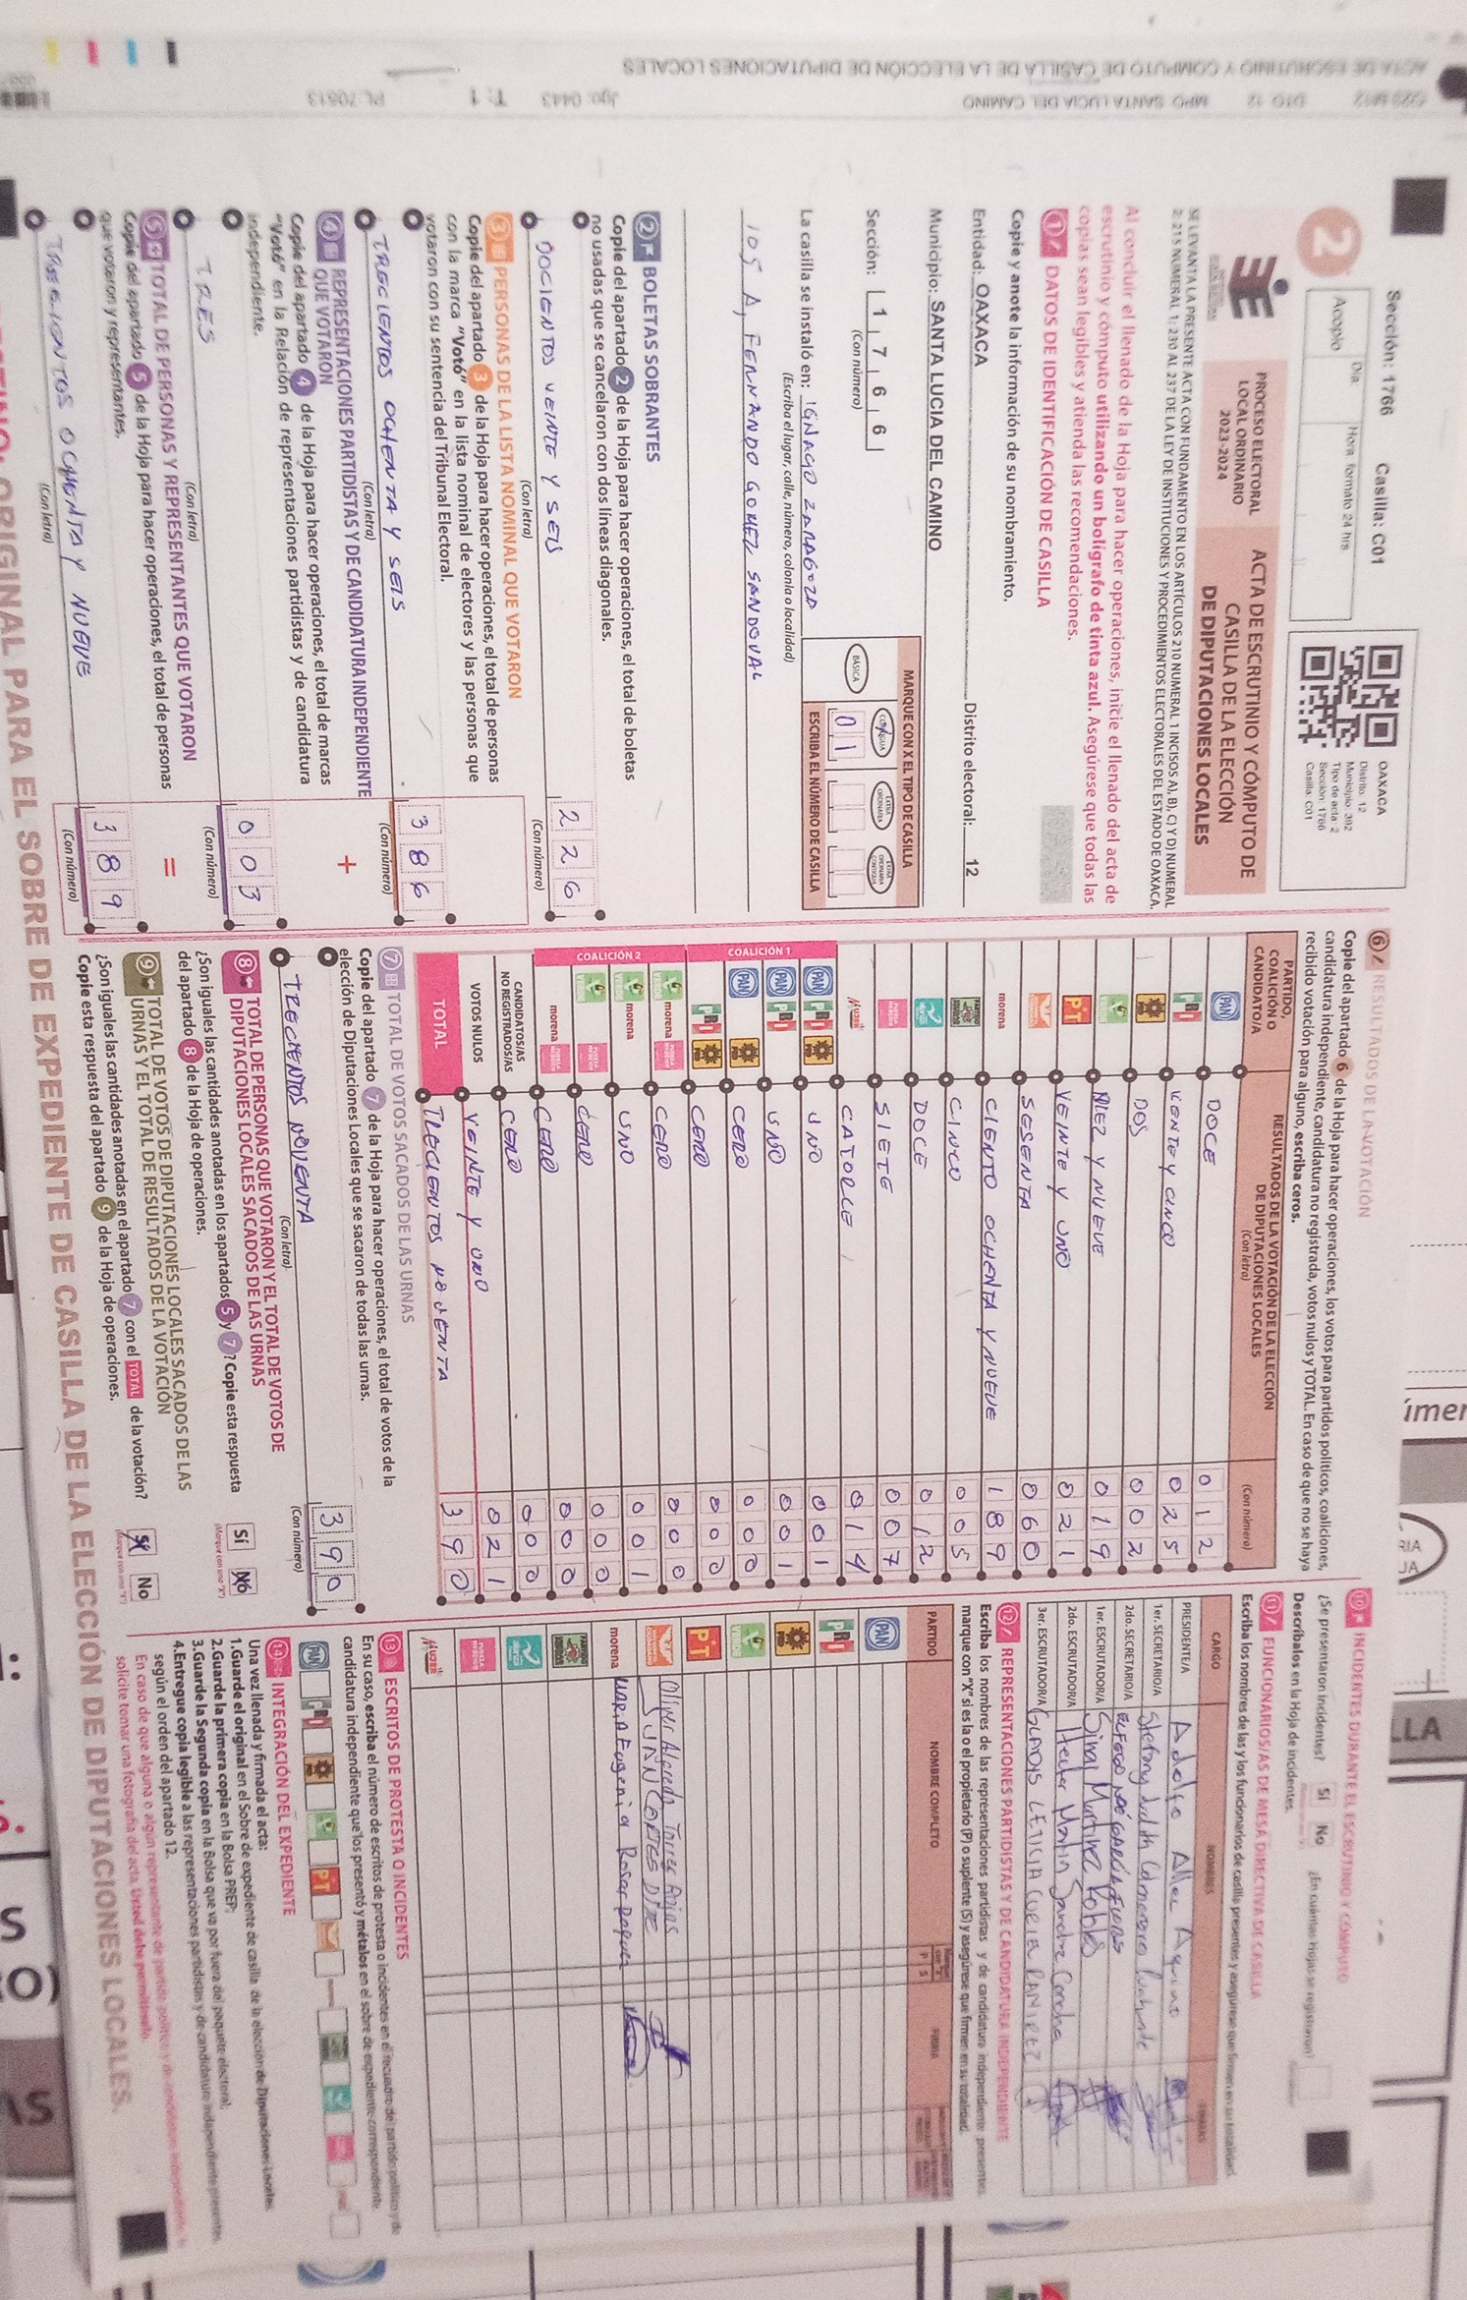 Sección: 1766 Casilla: C01
2
Acopio
Día
Hora formato 24 hrs
OAXACA
Distrito: 12
Municipio: 392
Tipo de acta: 2
Sección: 1766
Casilla: C01
PROCESO ELECTORAL
LOCAL ORDINARIO
2023-2024
ACTA DE ESCRUTINIO Y CÓMPUTO DE
CASILLA DE LA ELECCIÓN
DE DIPUTACIONES LOCALES
SE LEVANTA LA PRESENTE ACTA CON FUNDAMENTO EN LOS ARTÍCULOS 210 NUMERAL 1 INCISOS A), B), C) Y D) NUMERAL
2; 215 NUMERAL 1; 230 AL 237 DE LA LEY DE INSTITUCIONES Y PROCEDIMIENTOS ELECTORALES DEL ESTADO DE OAXACA.
Al concluir el llenado de la Hoja para hacer operaciones, inicie el llenado del acta de
escrutinio y cómputo utilizando un bolígrafo de tinta azul. Asegúrese que todas las
copias sean legibles y atienda las recomendaciones.
1 DATOS DE IDENTIFICACIÓN DE CASILLA
Copie y anote la información de su nombramiento.
Entidad: OAXACA Distrito electoral: 12
Municipio: SANTA LUCIA DEL CAMINO
Sección: 1 7 6 6
(Con número)
MARQUE CON X EL TIPO DE CASILLA
BÁSICA
ESCRIBA EL NÚMERO DE CASILLA
0 1
La casilla se instaló en: IGNAGO ZARAGOZA
(Escriba el lugar, calle, número, colonia o localidad)
105 A, FERNANDO GOMEZ SANDOVAL
2 BOLETAS SOBRANTES
Copie del apartado 2 de la Hoja para hacer operaciones, el total de boletas
no usadas que se cancelaron con dos líneas diagonales.
DOCIENTOS VEINTE Y SEIS
(Con letra)
2 2 6
(Con número)
3 PERSONAS DE LA LISTA NOMINAL QUE VOTARON
Copie del apartado 3 de la Hoja para hacer operaciones, el total de personas
con la marca "Votó" en la lista nominal de electores y las personas que
votaron con su sentencia del Tribunal Electoral.
TRECIENTOS OCHENTA Y SEIS
(Con letra)
3 8 6
(Con número)
4 REPRESENTACIONES PARTIDISTAS Y DE CANDIDATURA INDEPENDIENTE
QUE VOTARON
+
Copie del apartado 4 de la Hoja para hacer operaciones, el total de marcas
"Votó" en la Relación de representaciones partidistas y de candidatura
independiente.
TRES
(Con letra)
0 0 3
(Con número)
5 TOTAL DE PERSONAS Y REPRESENTANTES QUE VOTARON
=
Copie del apartado 5 de la Hoja para hacer operaciones, el total de personas
que votaron y representantes.
TRESCIENTOS OCHENTA Y NUEVE
(Con letra)
3 8 9
(Con número)
6 RESULTADOS DE LA VOTACIÓN
Copie del apartado 6 de la Hoja para hacer operaciones, los votos para partidos políticos, coaliciones,
candidatura independiente, candidatura no registrada, votos nulos y TOTAL. En caso de que no se haya
recibido votación para alguno, escriba ceros.
PARTIDO,
COALICIÓN O
CANDIDATO/A
RESULTADOS DE LA VOTACIÓN DE LA ELECCIÓN
DE DIPUTACIONES LOCALES
(Con letra)
(Con número)
PAN DOCE 0 1 2
PRI VEINTE Y CINCO 0 2 5
PRD DOS 0 0 2
VERDE DIEZ Y NUEVE 0 1 9
PT VEINTE Y UNO 0 2 1
SESENTA 0 6 0
morena CIENTO OCHENTA Y NUEVE 1 8 9
CINCO 0 0 5
DOCE 0 1 2
SIETE 0 0 7
MUJER CATORCE 0 1 4
COALICIÓN 1
PAN PRI PRD UNO 0 0 1
PAN PRI UNO 0 0 1
PAN PRD CERO 0 0 0
PRI PRD CERO 0 0 0
COALICIÓN 2
VERDE morena CERO 0 0 0
VERDE morena UNO 0 0 1
VERDE CERO 0 0 0
morena CERO 0 0 0
CANDIDATOS/AS
NO REGISTRADOS/AS
CERO 0 0 0
VOTOS NULOS VEINTE Y UNO 0 2 1
TOTAL TRECIENTOS NOVENTA 3 9 0
7 TOTAL DE VOTOS SACADOS DE LAS URNAS
Copie del apartado 7 de la Hoja para hacer operaciones, el total de votos de la
elección de Diputaciones Locales que se sacaron de todas las urnas.
TRECIENTOS NOVIENTA
(Con letra)
3 9 0
(Con número)
8 TOTAL DE PERSONAS QUE VOTARON Y EL TOTAL DE VOTOS DE
DIPUTACIONES LOCALES SACADOS DE LAS URNAS
¿Son iguales las cantidades anotadas en los apartados 5 y 7? Copie esta respuesta
del apartado 8 de la Hoja de operaciones.
Sí No
9 TOTAL DE VOTOS DE DIPUTACIONES LOCALES SACADOS DE LAS
URNAS Y EL TOTAL DE RESULTADOS DE LA VOTACIÓN
¿Son iguales las cantidades anotadas en el apartado 7 con el TOTAL de la votación?
Copie esta respuesta del apartado 9 de la Hoja de operaciones.
Sí No
10 INCIDENTES DURANTE EL ESCRUTINIO Y CÓMPUTO
¿Se presentaron incidentes? Sí No ¿En cuántas Hojas se registraron?
Descríbalos en la Hoja de incidentes.
11 FUNCIONARIOS/AS DE MESA DIRECTIVA DE CASILLA
Escriba los nombres de las y los funcionarios de casilla presentes y asegúrese que firmen en su totalidad.
CARGO NOMBRES FIRMAS
PRESIDENTE/A Adolfo Allec Aquino
1er. SECRETARIO/A
2do. SECRETARIO/A
1er. ESCRUTADOR/A Gina Martinez Robles
2do. ESCRUTADOR/A
3er. ESCRUTADOR/A GLADIS LETICIA CURIEL RAMIREZ
12 REPRESENTACIONES PARTIDISTAS Y DE CANDIDATURA INDEPENDIENTE
Escriba los nombres de las representaciones partidistas y de candidatura independiente presentes,
marque con "X" si es la o el propietario (P) o suplente (S) y asegúrese que firmen en su totalidad.
PARTIDO NOMBRE COMPLETO P S FIRMA
PAN
PRI
PRD
VERDE
PT
Oliver Alfredo Torres Rojas
JUAN CORTES DIAZ
morena MARIA Eugenia Rosar
MUJER
13 ESCRITOS DE PROTESTA O INCIDENTES
En su caso, escriba el número de escritos de protesta o incidentes en el recuadro del partido político y de
candidatura independiente que los presentó y métalos en el sobre de expediente correspondiente.
PAN PRI PRD VERDE PT
14 INTEGRACIÓN DEL EXPEDIENTE
Una vez llenada y firmada el acta:
1.Guarde el original en el Sobre de expediente de casilla de la elección de Diputaciones Locales.
2.Guarde la primera copia en la Bolsa PREP.
3.Guarde la Segunda copia en la Bolsa que va por fuera del paquete electoral.
4.Entregue copia legible a las representaciones partidistas y de candidatura independiente presentes,
según el orden del apartado 12.
En caso de que alguna o algún representante de partido político y de candidatura independiente
solicite tomar una fotografía del acta, Usted debe permitírselo.
DESTINO: ORIGINAL PARA EL SOBRE DE EXPEDIENTE DE CASILLA DE LA ELECCIÓN DE DIPUTACIONES LOCALES.
ACTA DE ESCRUTINIO Y COMPUTO DE CASILLA DE LA ELECCIÓN DE DIPUTACIONES LOCALES
DTO 12 MPO SANTA LUCIA DEL CAMINO Jgo: 0443 T: 1 PL: 70513